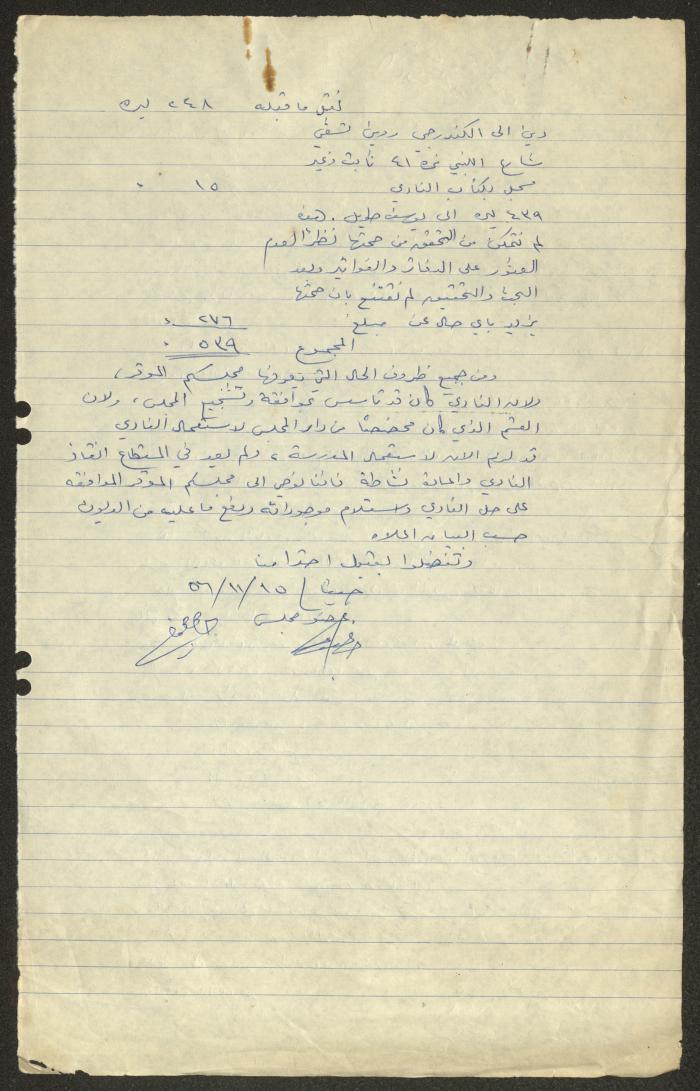 نقل ما قبله ٢٤٨ ليره
دين الى الكندرجي روبين
شارع اللنبي نمرة ٤١ ثابت وغير
مسجل بكتاب النادي ١٥ "
٤٣٩ ليره الى يوسف طويل. هذه
لم نتمكن من التحقق من صحتها نظرا لعدم
العثور على الدفاتر والفواتير وبعد
البحث والتحقيق لم نقتنع بان صحتها
يزيد باي حال عن مبلغ ٢٧٦ "
المجموع ٥٣٩ "
ومن جميع ظروف الحال التي يعرفها مجلسكم الموقر،
ولان النادي كان قد تاسس بموافقة وتشجيع المجلس، ولان
القسم الذي كان مخصصا من دار المجلس لاستعمال النادي
قد لزم الان لاستعمال المدرسة، ولم يعد في المستطاع انقاذ
النادي واعادة نشاطه فاننا نوصي الى مجلسكم الموقر الموافقه
على حل النادي واستلام موجوداته ودفع ما عليه من الديون
حسب البيان اعلاه
وتفضلوا بقبول احترامنا
حيفا ١٥/١١/٥٦
عضو مجلس